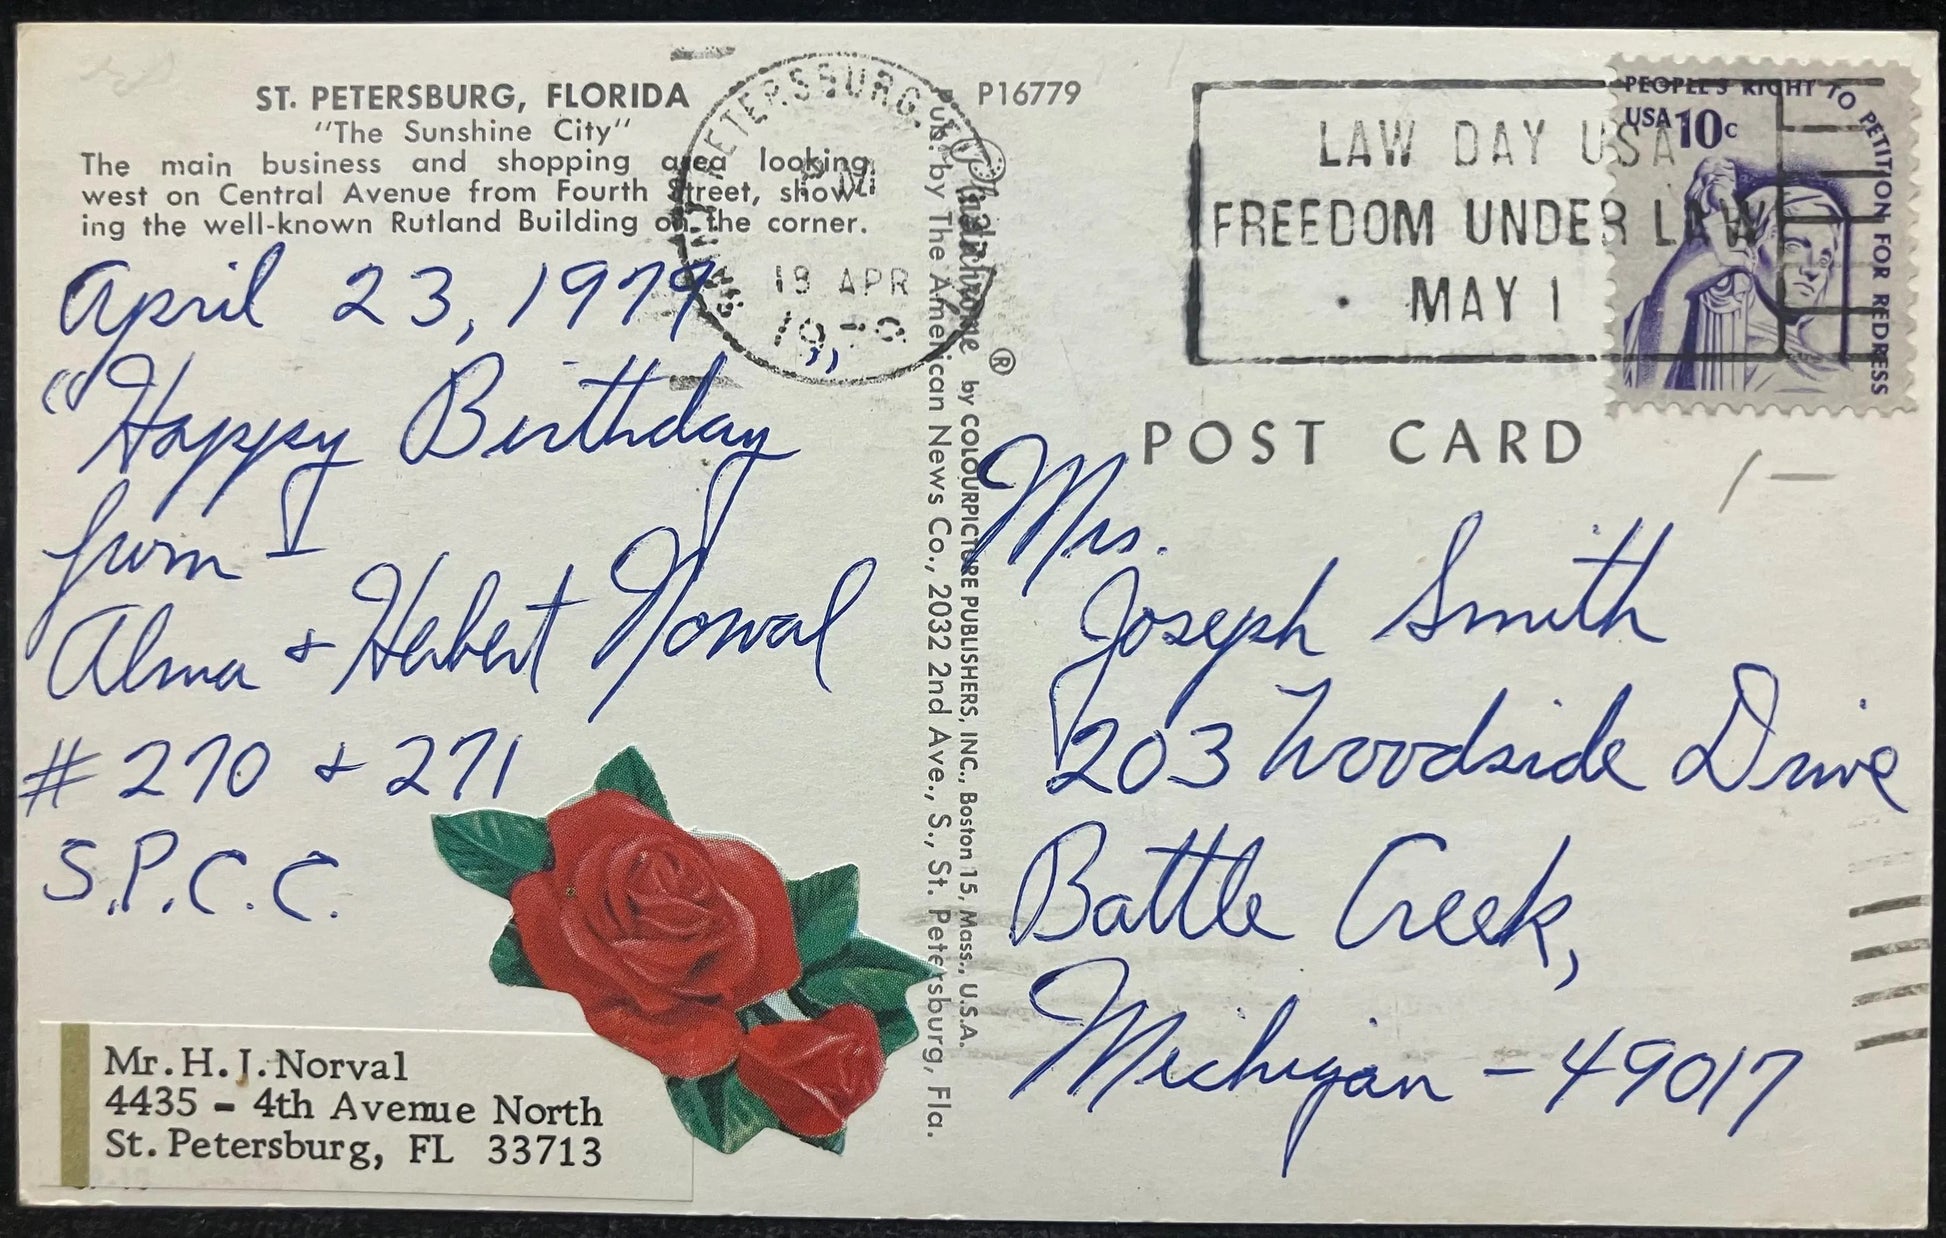 ST. PETERSBURG, FLORIDA
"The Sunshine City"
The main business and shopping area looking
west on Central Avenue from Fourth Street, show-
ing the well-known Rutland Building on the corner.
April 23, 1979
"Happy Birthday"
from
Alma + Herbert Norval
# 270 + 271
S.P.C.C.
Mr. H. J. Norval
4435 - 4th Avenue North
St. Petersburg, FL 33713
PETERSBURG, FL
PM
18 APR
Pub. by The American News Co., 2032 2nd Ave., S., St. Petersburg, Fla.
Plastichrome ® by COLOURPICTURE PUBLISHERS, INC., Boston 15, Mass., U.S.A.
P16779
LAW DAY USA
FREEDOM UNDER LAW
MAY 1
PEOPLE'S RIGHT TO PETITION FOR REDRESS
USA 10c
POST CARD
Mrs.
Joseph Smith
203 Woodside Drive
Battle Creek,
Michigan - 49017